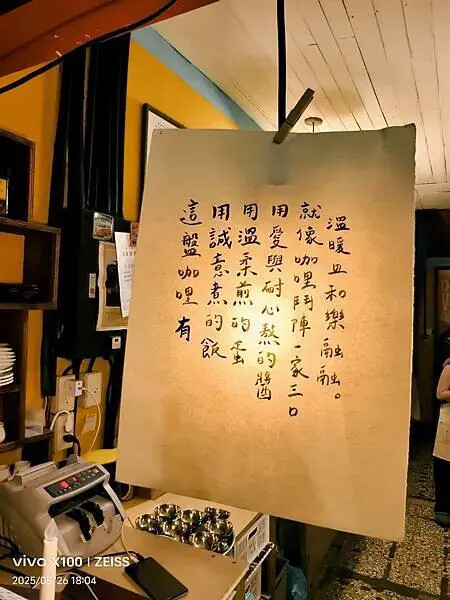 這盤咖哩有
用誠意煮的飯
用溫柔煎的蛋
用愛與耐心熬的醬
就像咖哩鬥陣一家三口
溫暖且和樂融融。
vivo X100 | ZEISS
2025/05/26 18:04